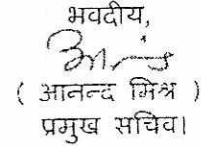 भवदीय,
( आनन्द मिश्र )
प्रमुख सचिव।